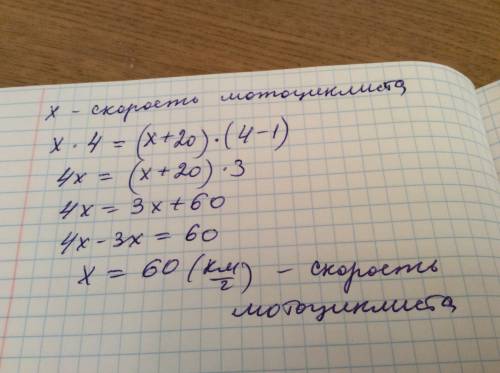 x - скорость мотоциклиста
x · 4 = (x+20) · (4-1)
4x = (x+20) · 3
4x = 3x + 60
4x - 3x = 60
x = 60 (км/г) - скорость
мотоциклиста